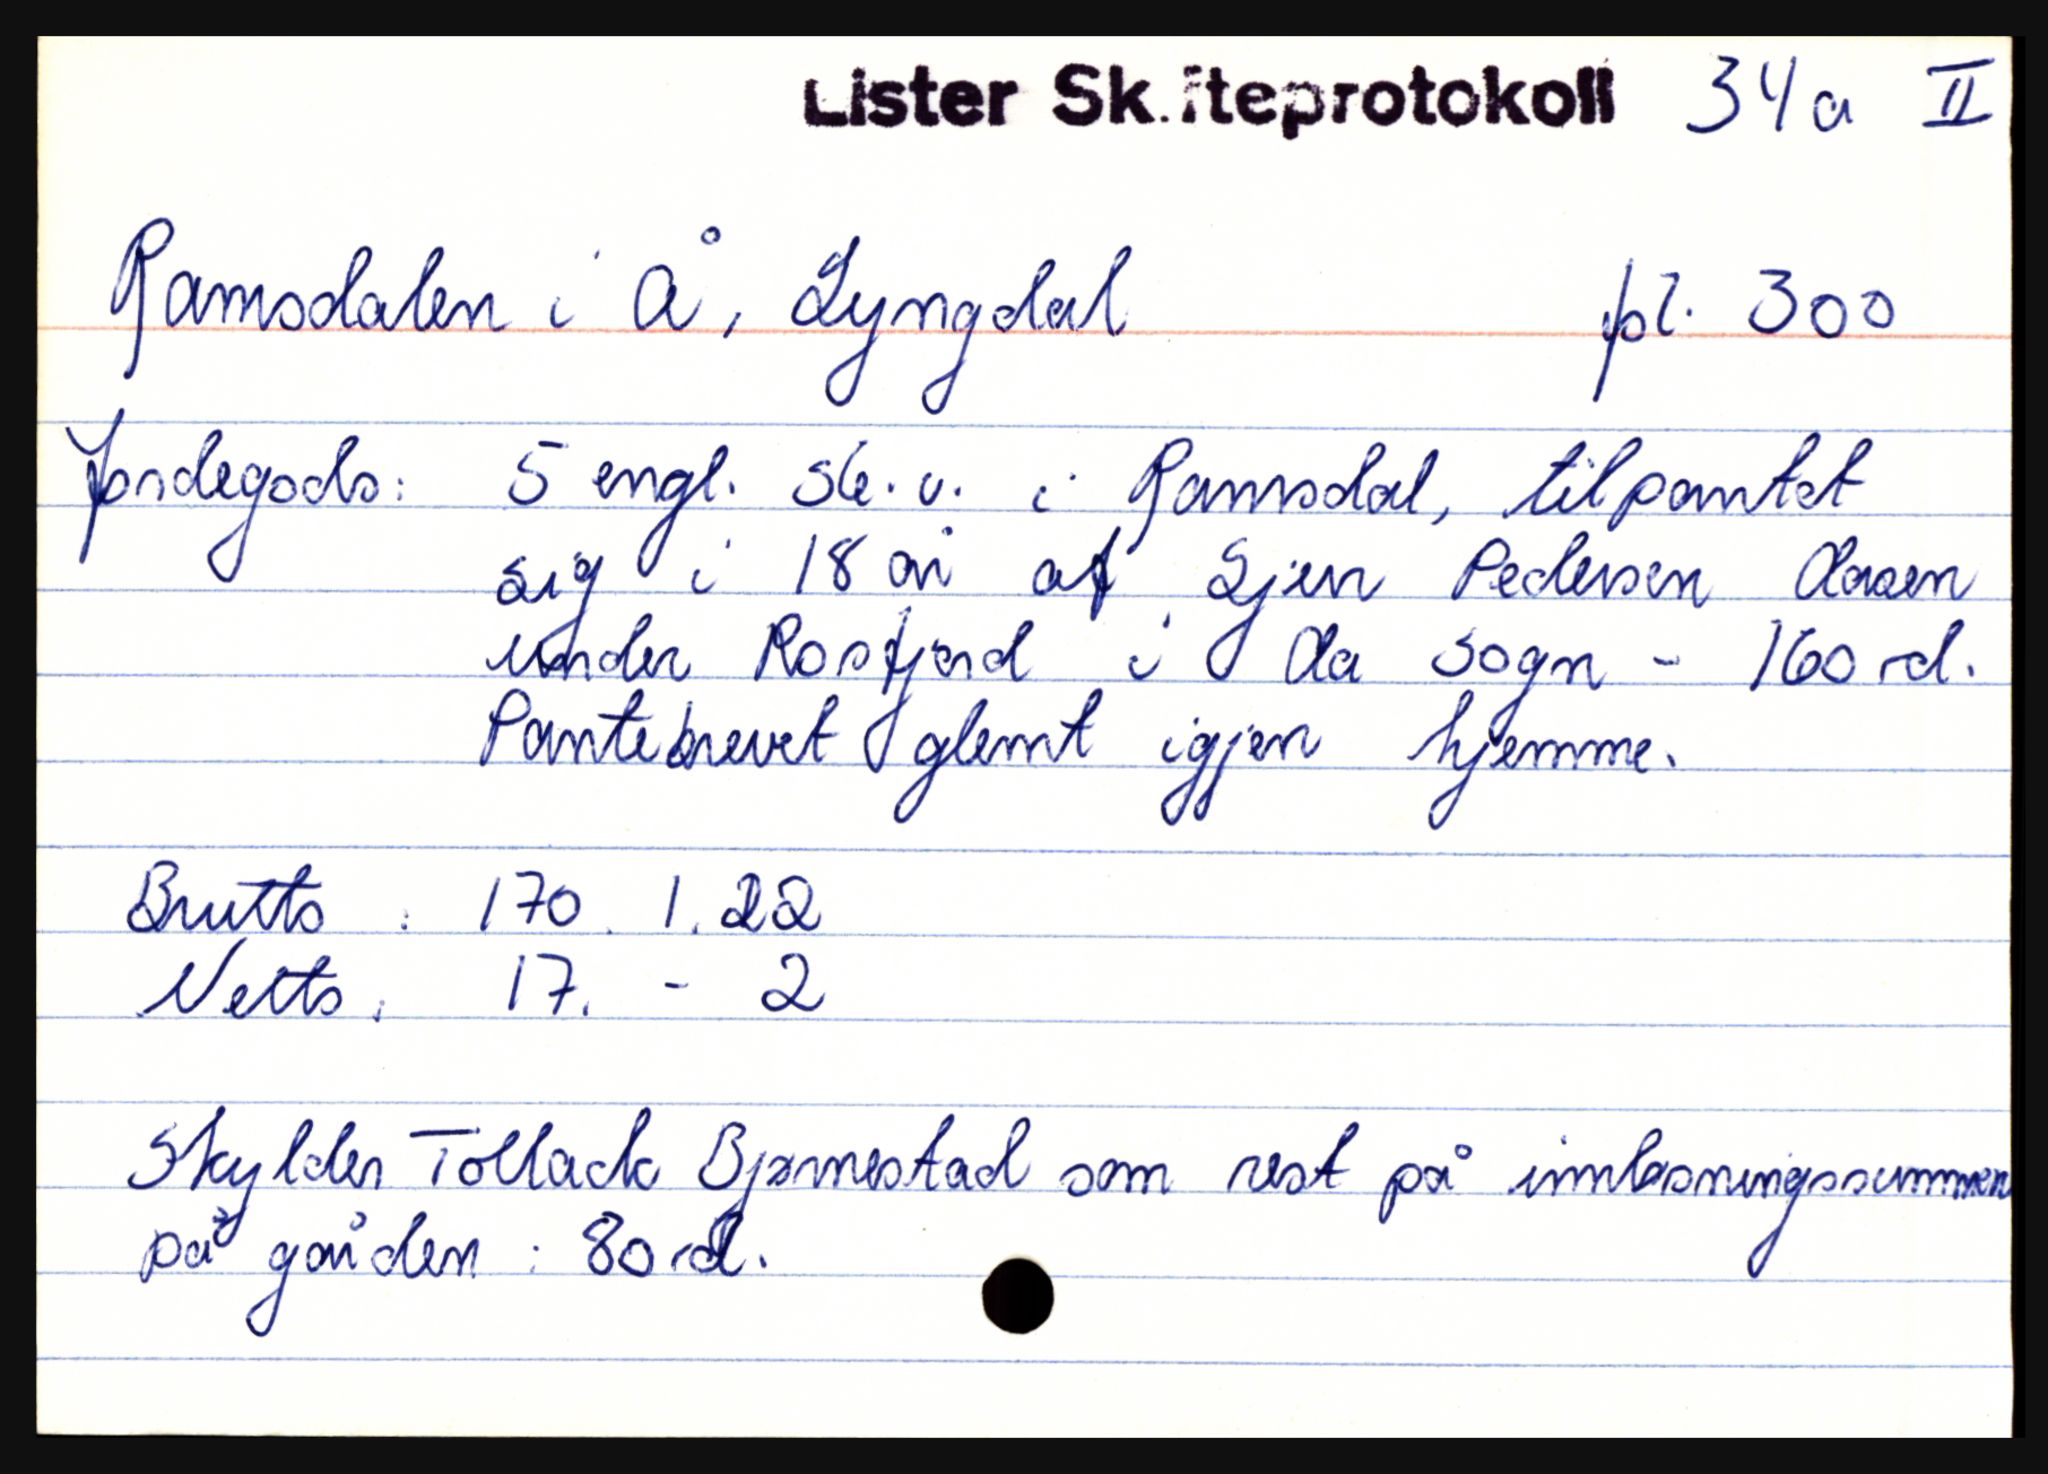 Lister Skifteprotokoll 34a II
Ramsdalen i Å, Lyngdal pl. 300
Jordegods: 5 engl. sk. v. i Ramsdal, tilpantet
sig i 18 år af Sjer Pedersen Aasen
under Rosfjord i Aa sogn - 160 rd.
Pantebrevet glemt igjen hjemme.
Brutto : 170. 1. 22
Netto : 17. - 2
Skylder Tollack Bjørnestad som rest på innløsningssummen
på gården : 80 rd.